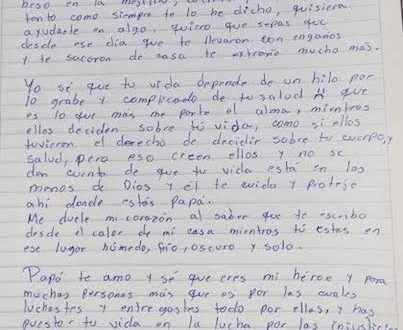 beso en la
tanto como siempre te lo he dicho, quisiera
ayudarte en algo, quiero que sepas que
desde ese día que te llevaron con engaños
y te sacaron de casa te extraño mucho más.
Yo sé que tu vida depende de un hilo por
lo grabe y complicado de tu salud y que
es lo que mas me parte el alma, mientras
ellos deciden sobre tú vida, como si ellos
tuvieren el derecho de decidir sobre tu cuerpo, y
salud, pero eso creen ellos y no se
dan cuenta de que tu vida está en las
manos de Dios y él te cuida y proteje
ahí donde estás Papá.
Me duele mi corazón al saber que te escribo
desde el calor de mi casa mientras tú estas en
ese lugar húmedo, frio, oscuro y solo.
Papá te amo y sé que eres mi héroe y para
muchas personas más que es por las cuales
luchastes y entregastes todo por ellas, y has
puesto tu vida en la lucha por las